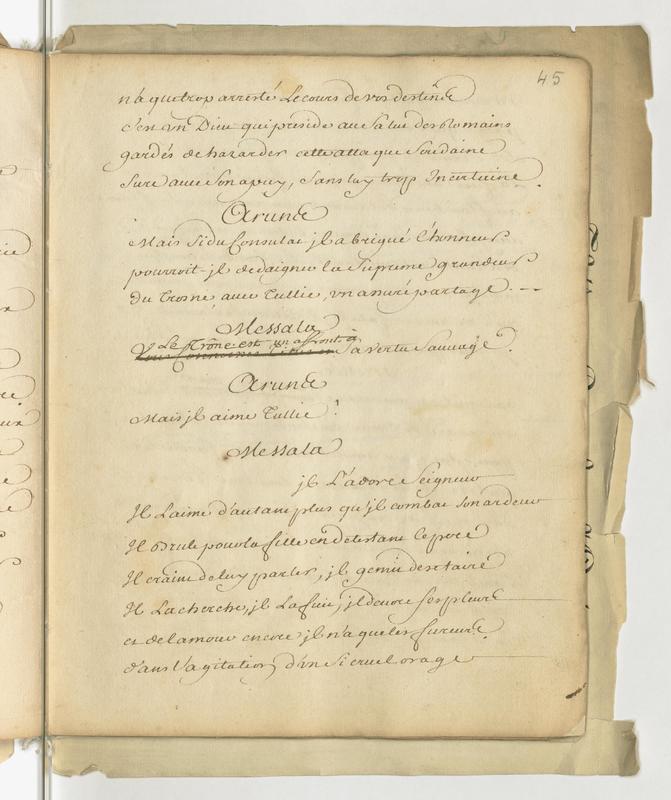 45
n'a que trop arresté Le cours de vos destins
c'est un Dieu qui preside au Salut des Romains
gardés de hazarder cette attaque Soudaine
Sure avec Son apuy, Sans luy trop Incertaine.
Arunce
Mais Si du Consulat jl a brigué L'honneur
pourroit-jl dedaigner la Suprême grandeur
du Trosne, avec Tullie, un assuré partage.
Messala
Le Trône est un affront à
Sa vertu Sauvage.
Arunce
Mais jl aime Tullie!
Messala
jl L'adore Seigneur
Il L'aime d'autant plus qu'jl combat Son ardeur
Il Brule pour la fille en detestant Le pere
Il craint de luy parler, jl gemit de se taire
Il La cherche, jl La fuit, jl devore Ses pleurs
et de lamour encore jl n'a que les fureurs.
dans L'agitation d'un Si cruel orage